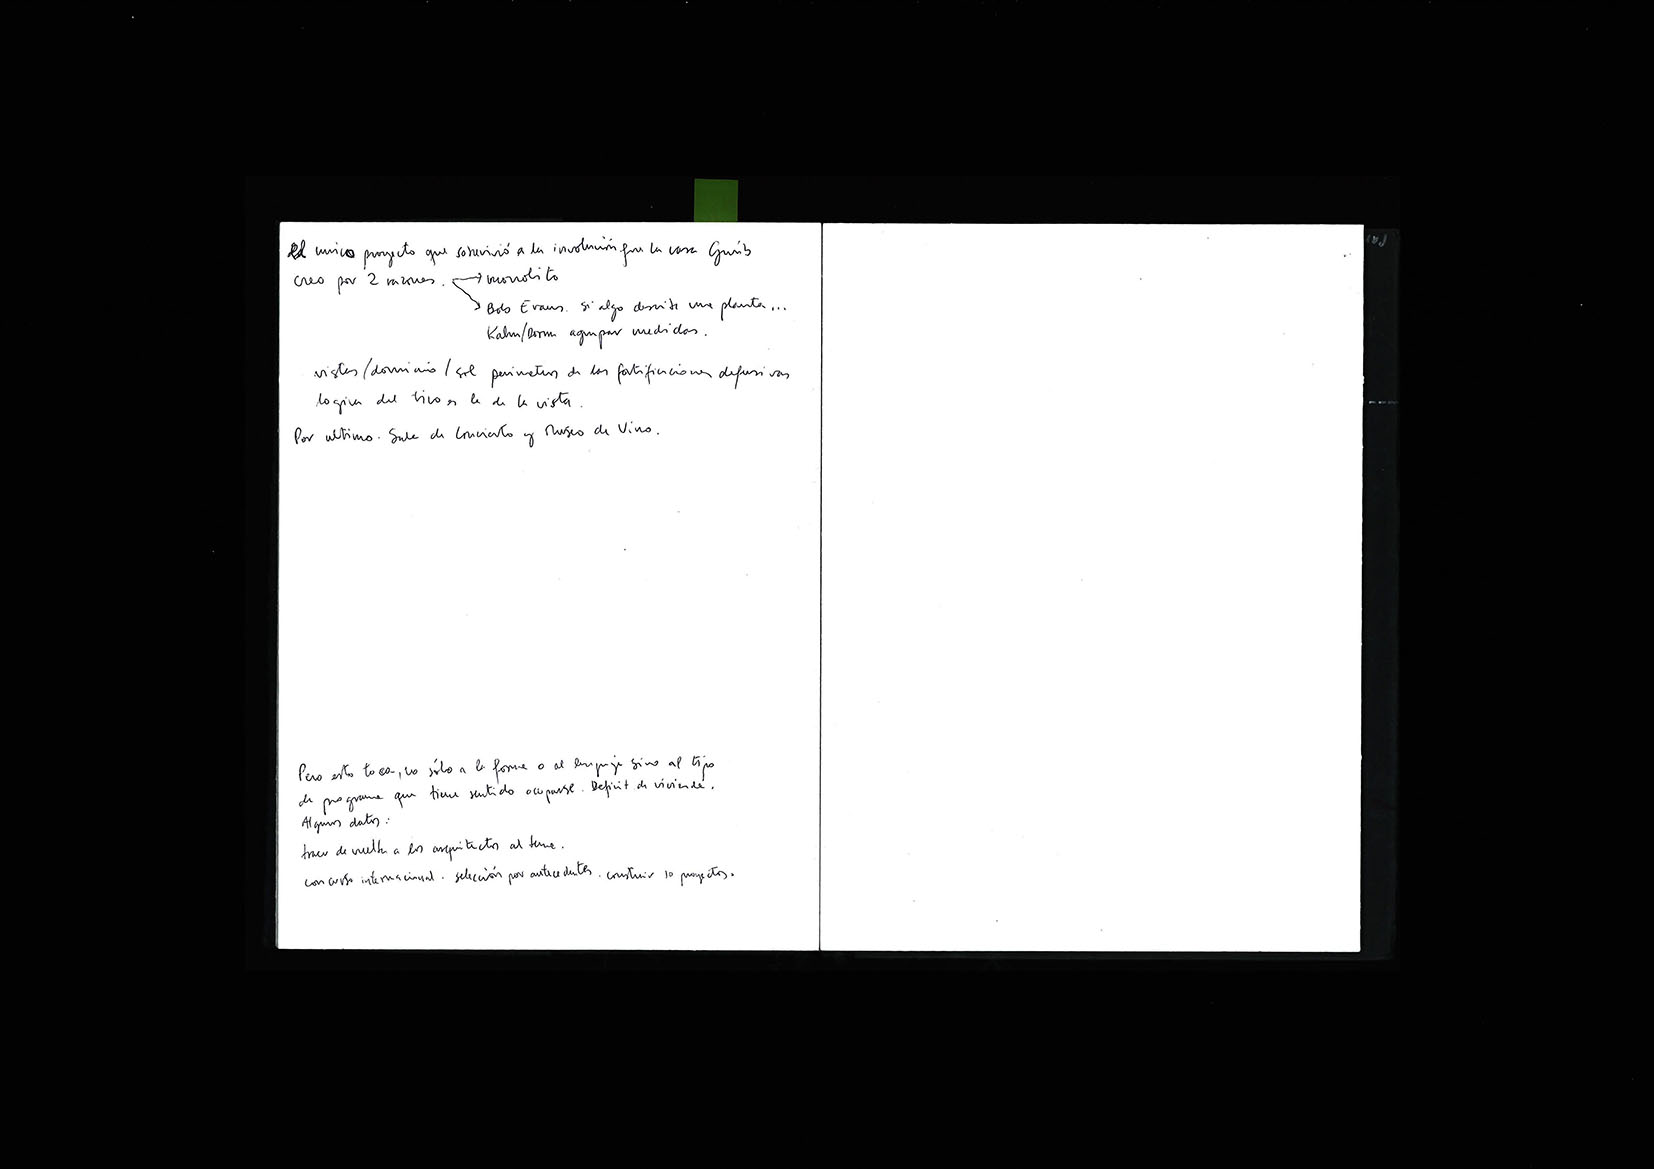 El unico proyecto que sobrevivió a la involución fue la casa
creo por 2 razones. → monolito
→ Bob Evans. si algo describe una planta...
Kahn/ agrupar medidas.
vistas/dominio/sol perimetros de las fortificaciones defensivas
logica del tiro es la de la vista.
Por ultimo. Sala de Concierto y Museo de Vino.
Pero esto toca, no sólo a la forma o al lenguaje sino al tipo
de programa que tiene sentido ocuparse. Deficit de vivienda.
Algunos datos:
traer de vuelta a los arquitectos al tema.
concurso internacional. selección por antecedentes. construir 10 proyectos.